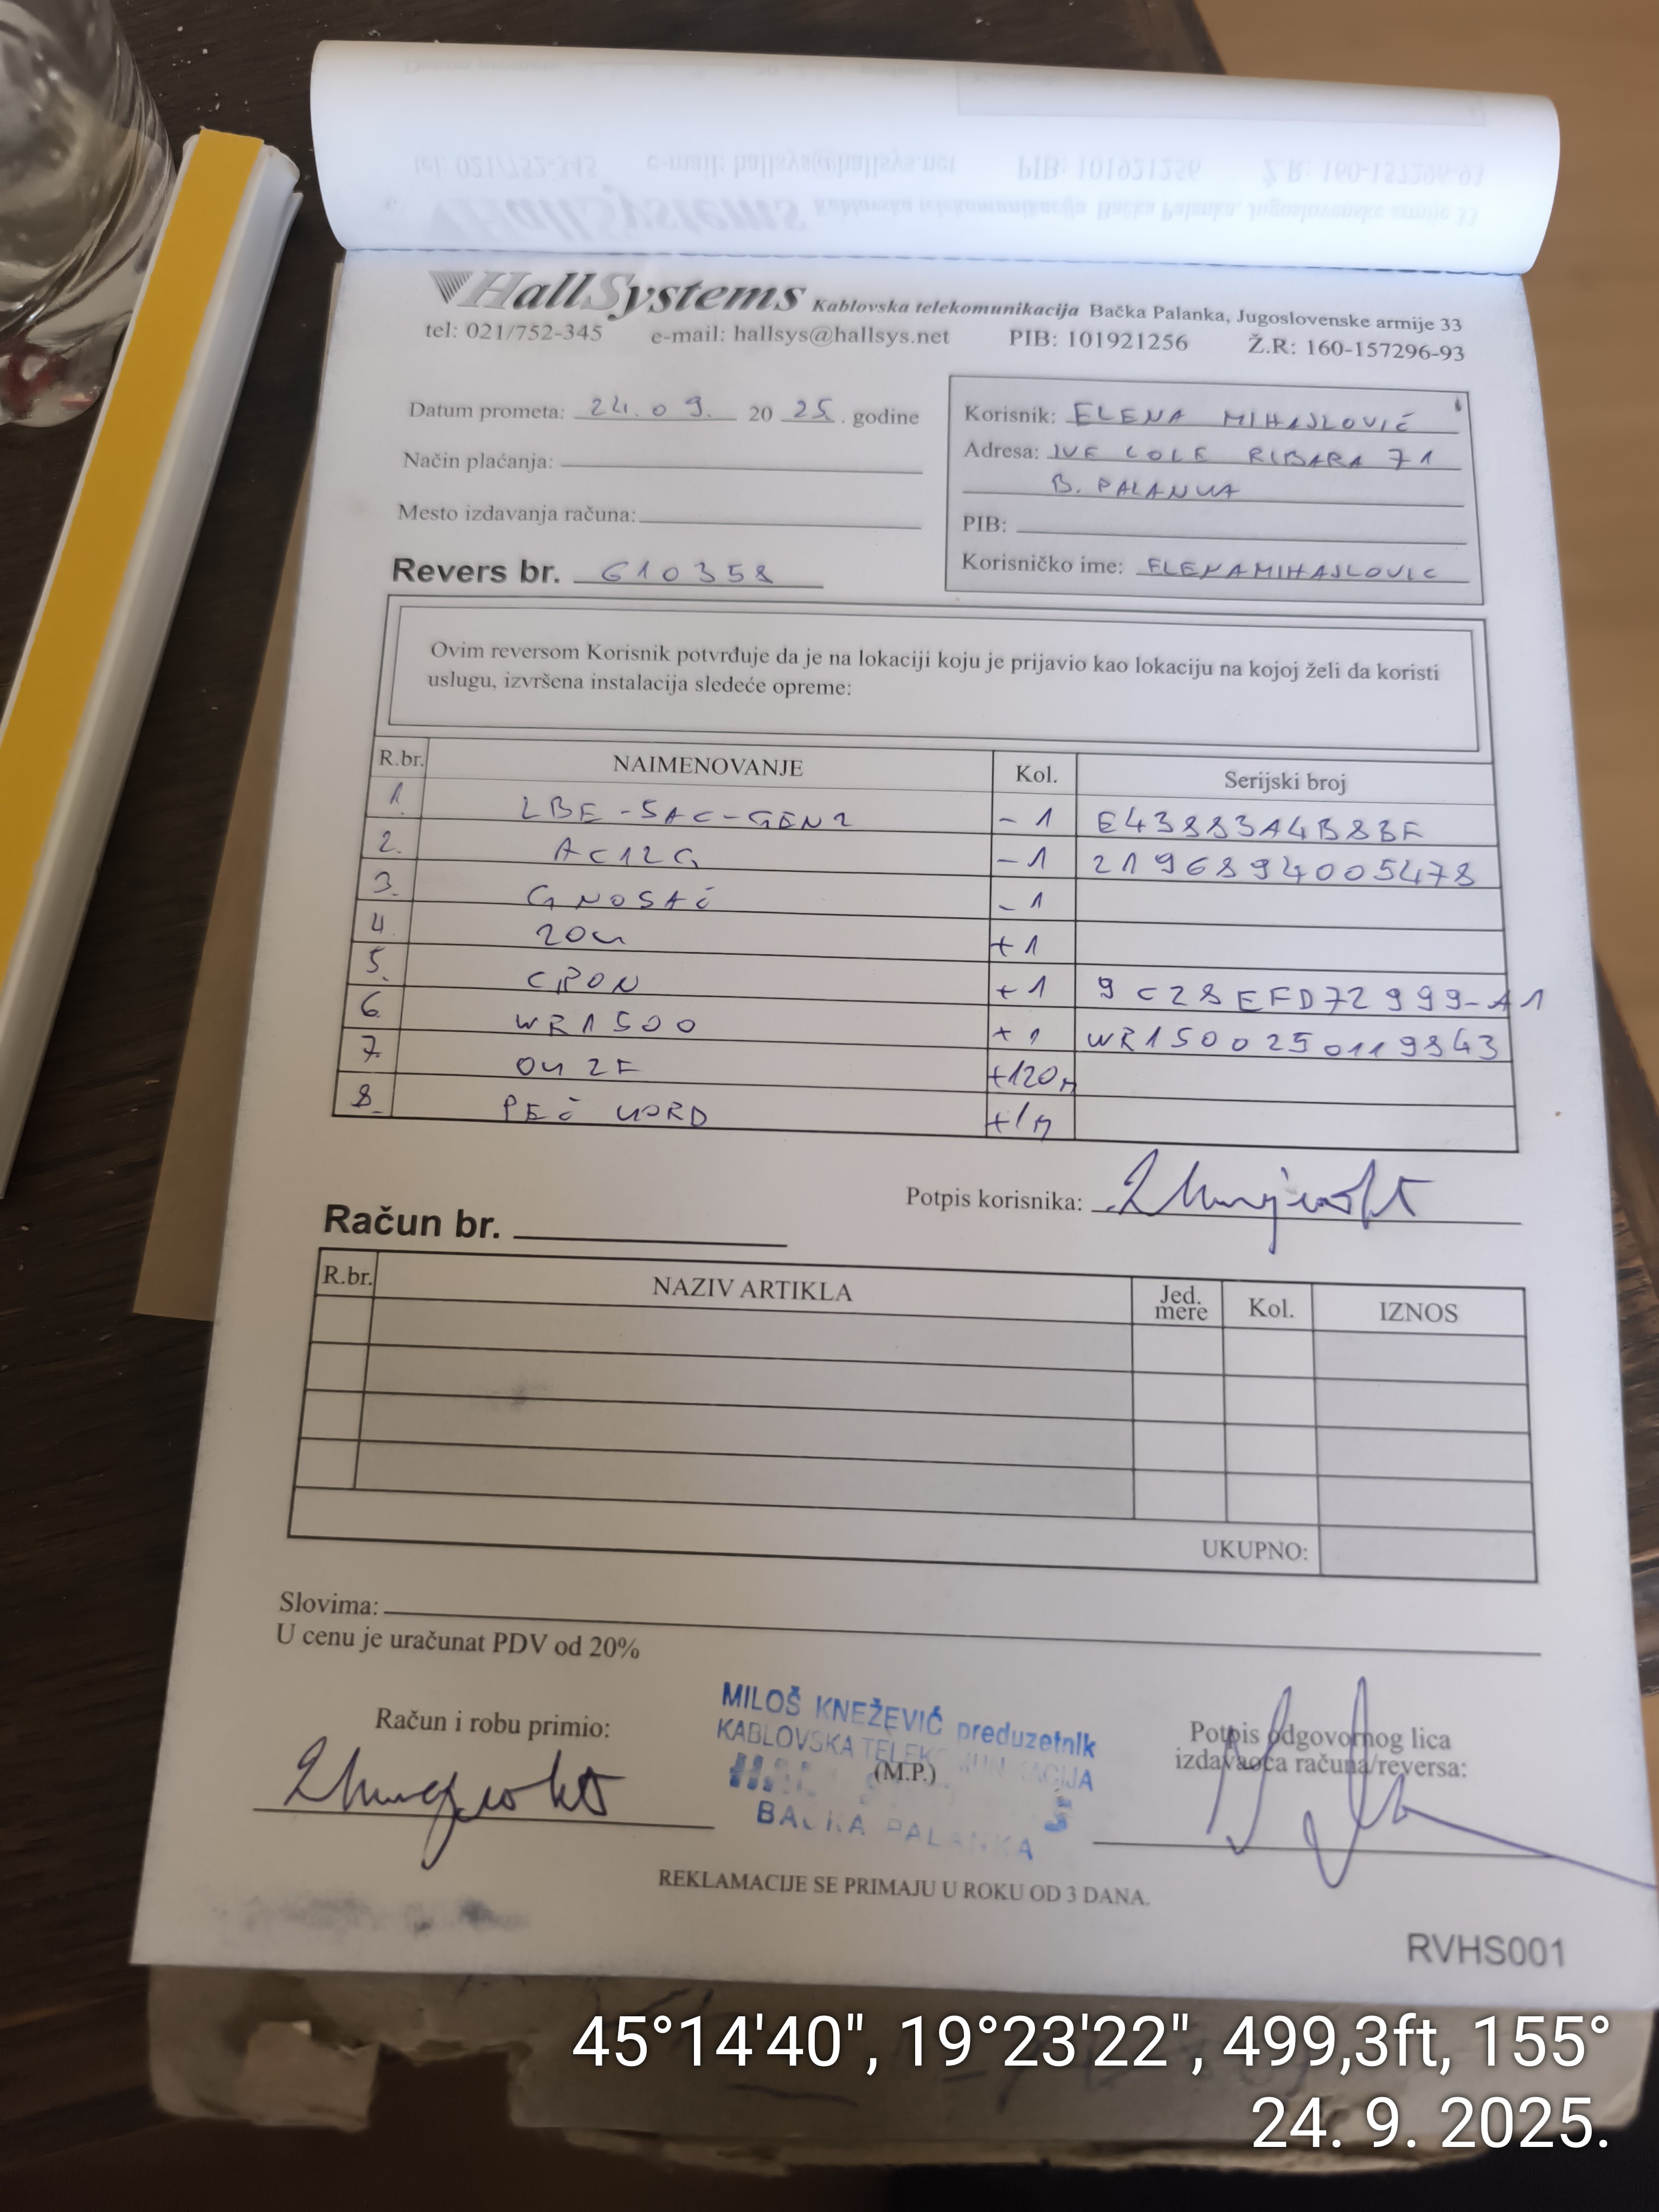 HallSystems Kablovska telekomunikacija Bačka Palanka, Jugoslovenske armije 33
tel: 021/752-345 e-mail: hallsys@hallsys.net PIB: 101921256 Ž.R: 160-157296-93
Datum prometa: 24.09. 20 25. godine
Način plaćanja:
Mesto izdavanja računa:
Revers br. 610358
Korisnik: ELENA MIHAJLOVIĆ
Adresa: IVE LOLE RIBARA 71
B. PALANKA
PIB:
Korisničko ime: ELENAMIHAJLOVIC
Ovim reversom Korisnik potvrđuje da je na lokaciji koju je prijavio kao lokaciju na kojoj želi da koristi
uslugu, izvršena instalacija sledeće opreme:
R.br. NAIMENOVANJE Kol. Serijski broj
1. LBE-5AC-GEN2 -1 E43883A4B8BF
2. AC12G -1 2196894005478
3. G NOSAČ -1
4. ZOK +1
5. GPON +1 9C28EFD72999-A1
6. WR1500 +1 WR1500250119843
7. OK 2F +120m
8. PEČ KORD +1m
Potpis korisnika:
Račun br.
R.br. NAZIV ARTIKLA Jed. mere Kol. IZNOS
UKUPNO:
Slovima:
U cenu je uračunat PDV od 20%
Račun i robu primio:
MILOŠ KNEŽEVIĆ preduzetnik
KABLOVSKA TELEKOMUNIKACIJA
(M.P.)
BAČKA PALANKA
Potpis odgovornog lica
izdavaoca računa/reversa:
REKLAMACIJE SE PRIMAJU U ROKU OD 3 DANA.
RVHS001
45°14'40", 19°23'22", 499,3ft, 155°
24. 9. 2025.